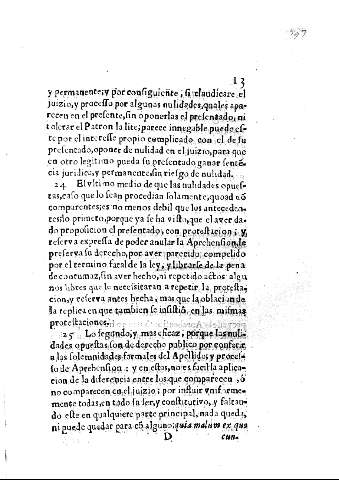 13
y permanente; y por consiguiente, si claudicare el
juizio, y processo por algunas nulidades, quales apa-
recen en el presente, sin oponerlas el presentado, ni
tolerar el Patron la lite; parece innegable puede es-
te por el interesse propio complicado con el de su
presentado, oponer de nulidad en el juizio, para que
en otro legitimo pueda su presentado ganar sentẽ-
cia juridica, y permanente, sin riesgo de nulidad.
24. El vltimo medio de que las nulidades opues-
tas, caso que lo sean procedian solamente, quoad nõ
comparentes, es no menos debil que los anteceden-
tes: lo primero, porque ya se ha visto, que el aver da-
do proposicion el presentado, con protestacion; y
reserva expressa de poder anular la Aprehension, le
preserva su derecho, por aver parecido, compelido
por el termino fatal de la ley, y librarse de la pena
de contumaz, sin aver hecho, ni repetido actos algu
nos libres que le necessitaran a repetir la protesta-
cion, y reserva antes hecha, mas que la oblacion de
la replica en que tambien se insistiò, en las mismas
protestaciones.
25. Lo segundo, y mas eficaz, porque las nuli-
dades opuestas, son de derecho publico por conferir
a las solemnidades formales del Apellido, y proces-
so de Aprehension: y en estas, no es facil la aplica-
cion de la diferencia entre los que comparecen, ò
no comparecen en el juizio; por influir vniforme-
mente todas, en todo su ser, y constitutivo, y faltan-
do este en qualquiere parte principal, nada queda,
ni puede quedar para cõ alguno: quia malum ex qua
D cun-